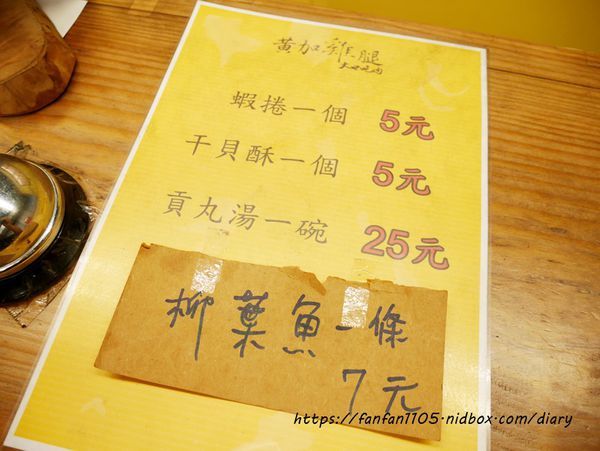 黃加雞腿
大口吃肉
蝦捲一個 5元
干貝酥一個 5元
貢丸湯一碗 25元
柳葉魚一條
7元
https://fanfan1105.nidbox.com/diary